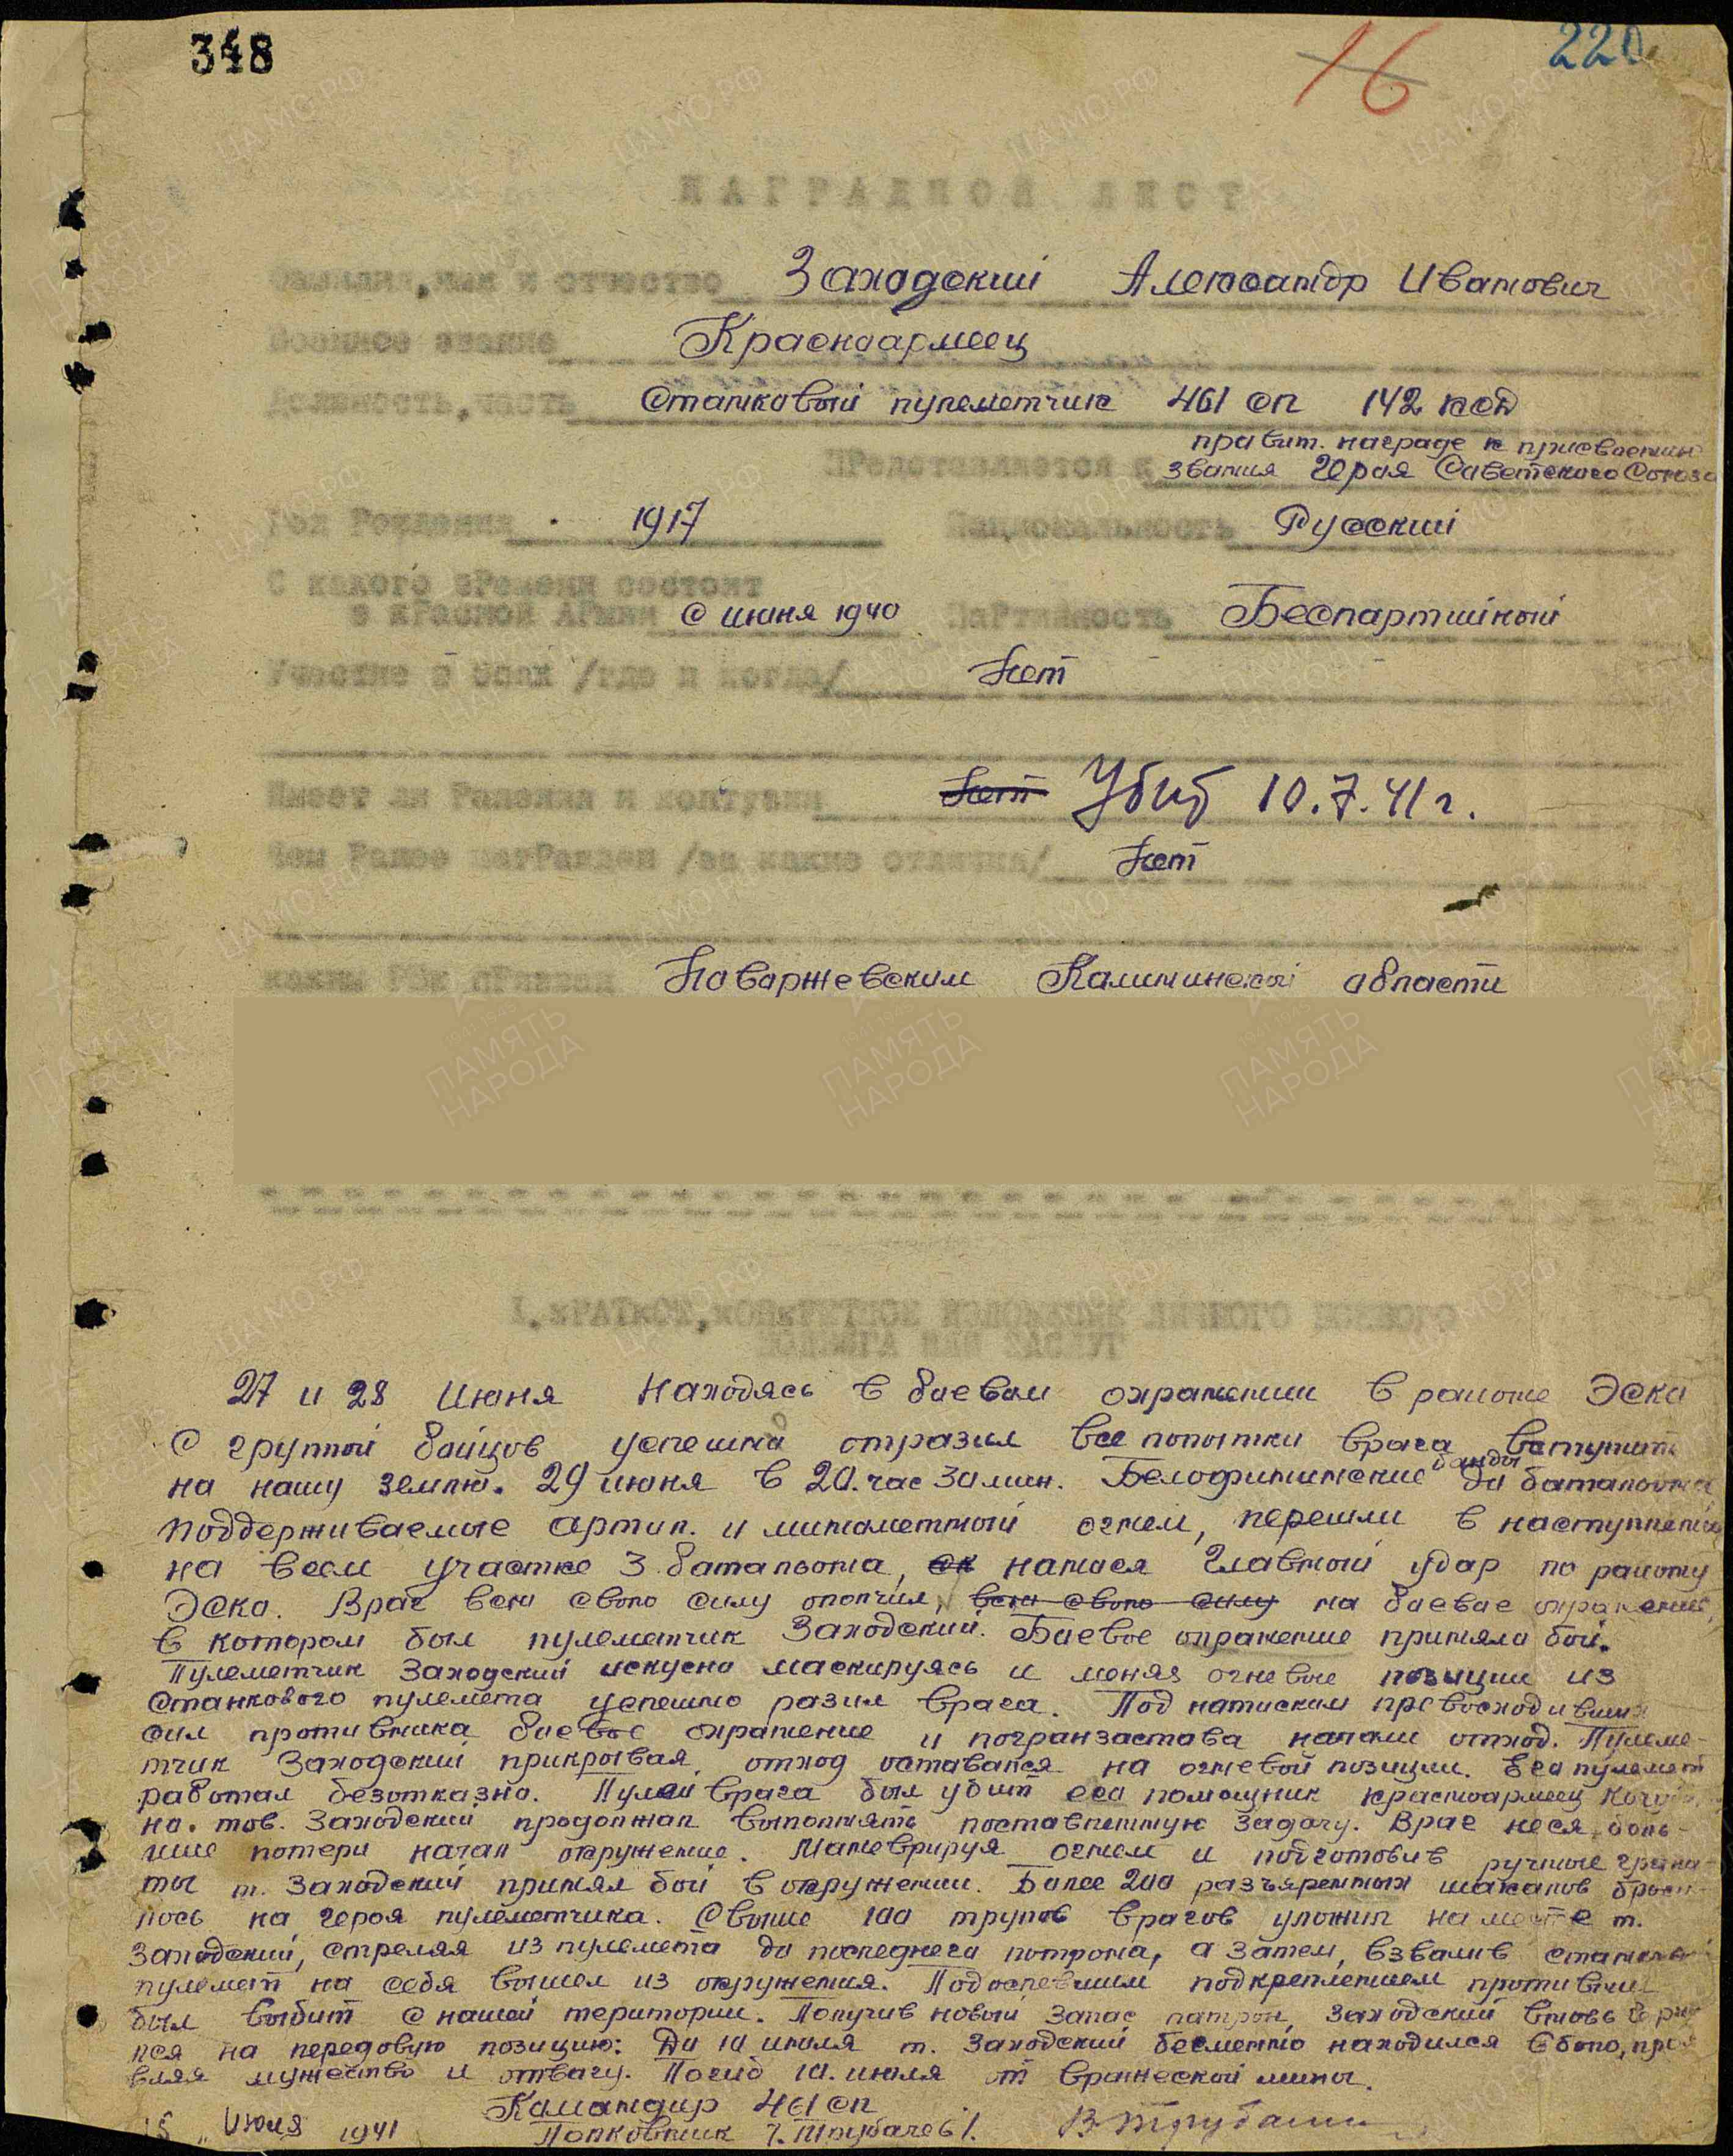 348
16
220
НАГРАДНОЙ ЛИСТ
Фамилия, имя и отчество Заходский Александр Иванович
Военное звание Красноармеец
Должность, часть Станковый пулеметчик 461 сп 142 ксд
правит. награде к присвоению
Представляется к звания Героя Советского Союза
Год Рождения 1917 Национальность Русский
С какого времени состоит
в красной Армии С июня 1940 Партийность Беспартийный
Участие в боях /где и когда/ Нет
Имеет ли Ранения и контузии Нет Убит 10.7.41 г.
Чем Ранее награжден /за какие отличия/ Нет
каким РВК призван Новоржевским Калининской области
ПАМЯТЬ НАРОДА
1. КРАТКОЕ, КОНКРЕТНОЕ ИЗЛОЖЕНИЕ ЛИЧНОГО БОЕВОГО
ПОДВИГА ИЛИ ЗАСЛУГ
27 и 28 Июня Находясь в боевом охранении в районе Эско
С группой бойцов успешно отразил все попытки врага вступить
на нашу землю. 29 июня в 20 час 30 мин. Белофинские банды до батальона
поддерживаемые артил. и минометный огнем, перешли в наступление
на всем участке 3 батальона, ок нанося Главный удар по району
Эско. Враг всю свою силу ополчил, всю свою силу на боевое охранение,
в котором был пулеметчик Заходский. Боевое охранение приняло бой.
Пулеметчик Заходский искусно маскируясь и меняя огневые позиции из
Станкового пулемета успешно разил врага. Под натиском превосходивших
сил противника боевое охранение и погранзастава начали отход. Пулеме-
тчик Заходский прикрывая отход оставался на огневой позиции. Его пулемет
работал безотказно. Пулей врага был убит его помощник красноармеец
но. тов. Заходский продолжал выполнять поставленную задачу. Враг неся боль-
шие потери начал окружение. Маневрируя огнем и подготовив ручные грана-
ты т. Заходский принял бой в окружении. Более 200 разъяренных шакалов броси-
лось на героя пулеметчика. Свыше 100 трупов врагов уложил на месте т.
Заходский, стреляя из пулемета до последнего потрона, а затем, взвалив станковый
пулемет на себя вышел из окружения. Подоспевшим подкреплением противник
был выбит с нашей територии. Получив новый запас патрон, Заходский вновь
лся на передовую позицию: До 10 июля т. Заходский бесменно находился в бою, проя
вляя мужество и отвагу. Погиб 10. июля от вражеской мины.
Командир 461 сп
15 „ Июля 1941 Полковник /. Трубачев /.